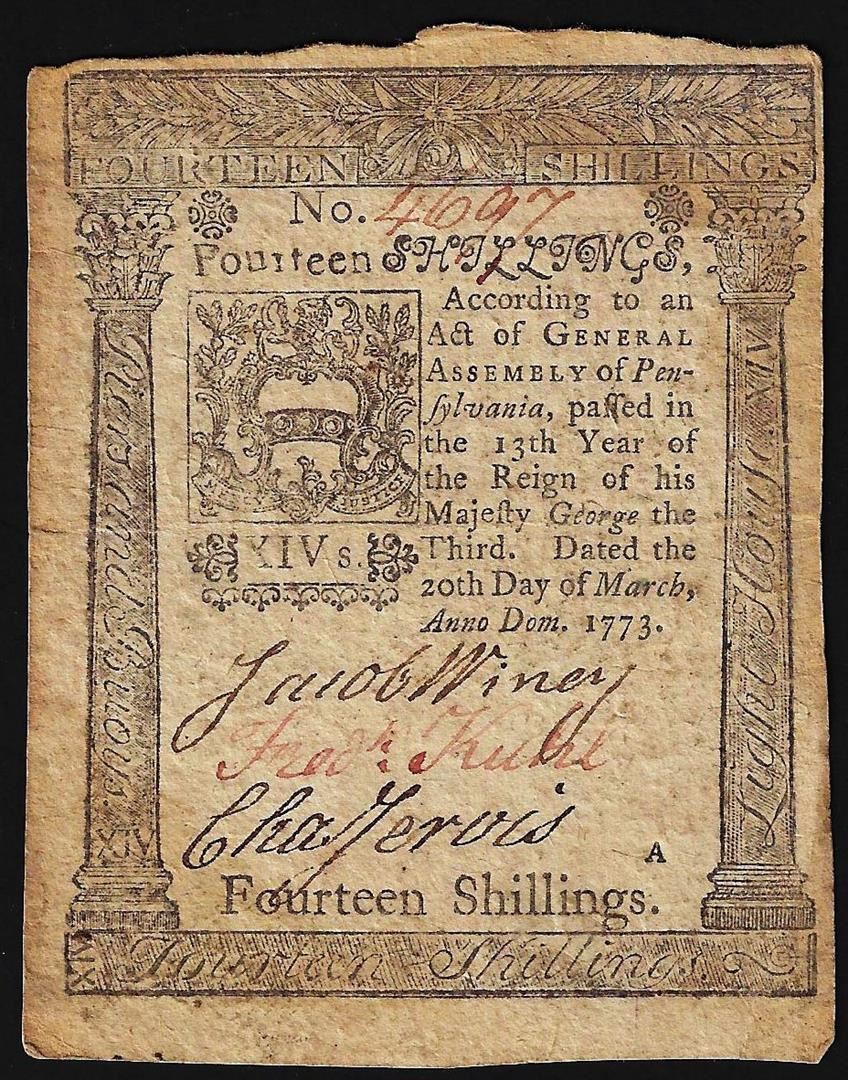 FOURTEEN SHILLINGS
No. 4697
Fourteen SHILLINGS,
According to an
Act of GENERAL
ASSEMBLY of Pen-
ſylvania, paſſed in
the 13th Year of
the Reign of his
Majeſty George the
Third. Dated the
20th Day of March,
Anno Dom. 1773.
MERCY JUSTICE
XIV s.
Piers and Buoys.
XIV
Light House. XIV
Jacob Winey
Fredk. Kuhl
Cha Jervis
A
Fourteen Shillings.
XIV
Fourteen Shillings.